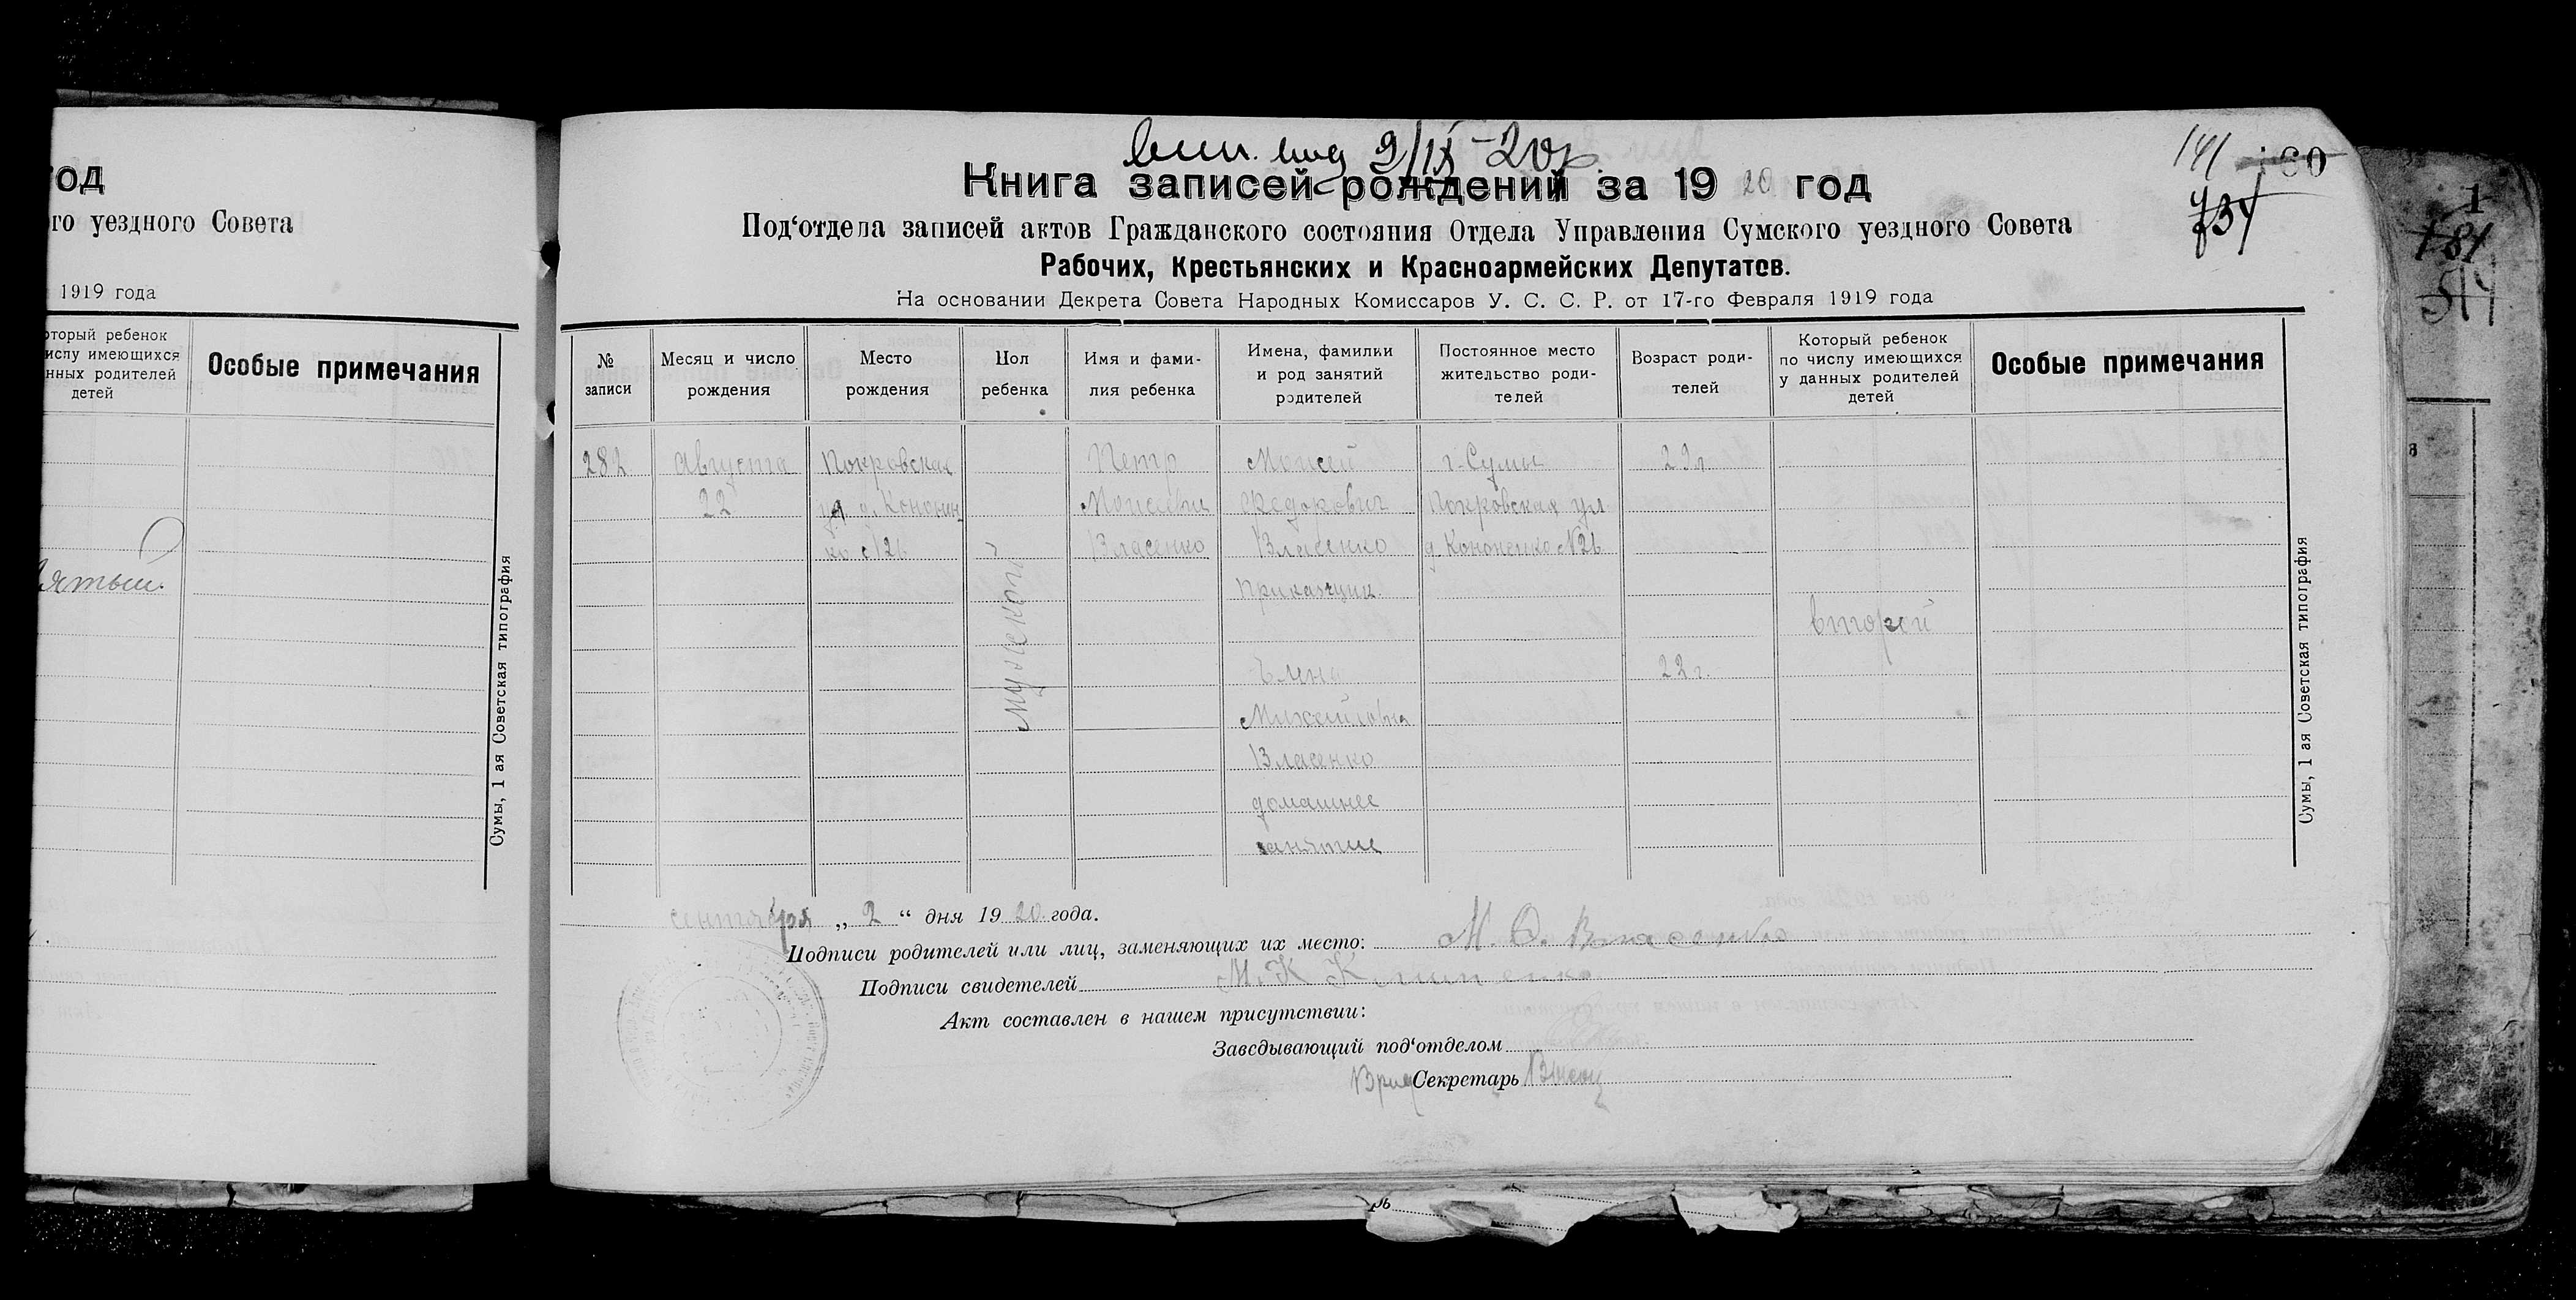 год
го уездного Совета
1919 года
оторый ребенок
числу имеющихся
нных родителей
детей
Особые примечания
ятый.
Сумы, 1 ая Советская типография
9/IX-20г
Книга записей рождений за 1920 год
Под‘отдела записей актов Гражданского состояния Отдела Управления Сумского уездного Совета
Рабочих, Крестьянских и Красноармейских Депутатов.
На основании Декрета Совета Народных Комиссаров У. С. С. Р. от 17-го Февраля 1919 года
141
734
№ записи
Месяц и число рождения
Место рождения
Пол ребенка
Имя и фами-
лия ребенка
Имена, фамилии
и род занятий
родителей
Постоянное место
жительство роди-
телей
Возраст роди-
телей
Который ребенок
по числу имеющихся
у данных родителей
детей
Особые примечания
282 Августа Покровская Петр Моисей г. Сумы 29л.
22 ул. д. Кононен Моисееви Федорович Покровская ул
ко №26 Власенко Власенко д. Кононенко №26
Приказчик.
мужской
второй
Елена 22г.
Михайловна
Власенко
домашнее
занятие
сентября „ 2 “ дня 1920 года.
Подписи родителей или лиц, заменяющих их место: М. Ф. Власенко
Подписи свидетелей М. К
Акт составлен в нашем присутствии:
Заведывающий под‘отделом
Врид Секретарь
Сумы, 1 ая Советская типография
1
181
514